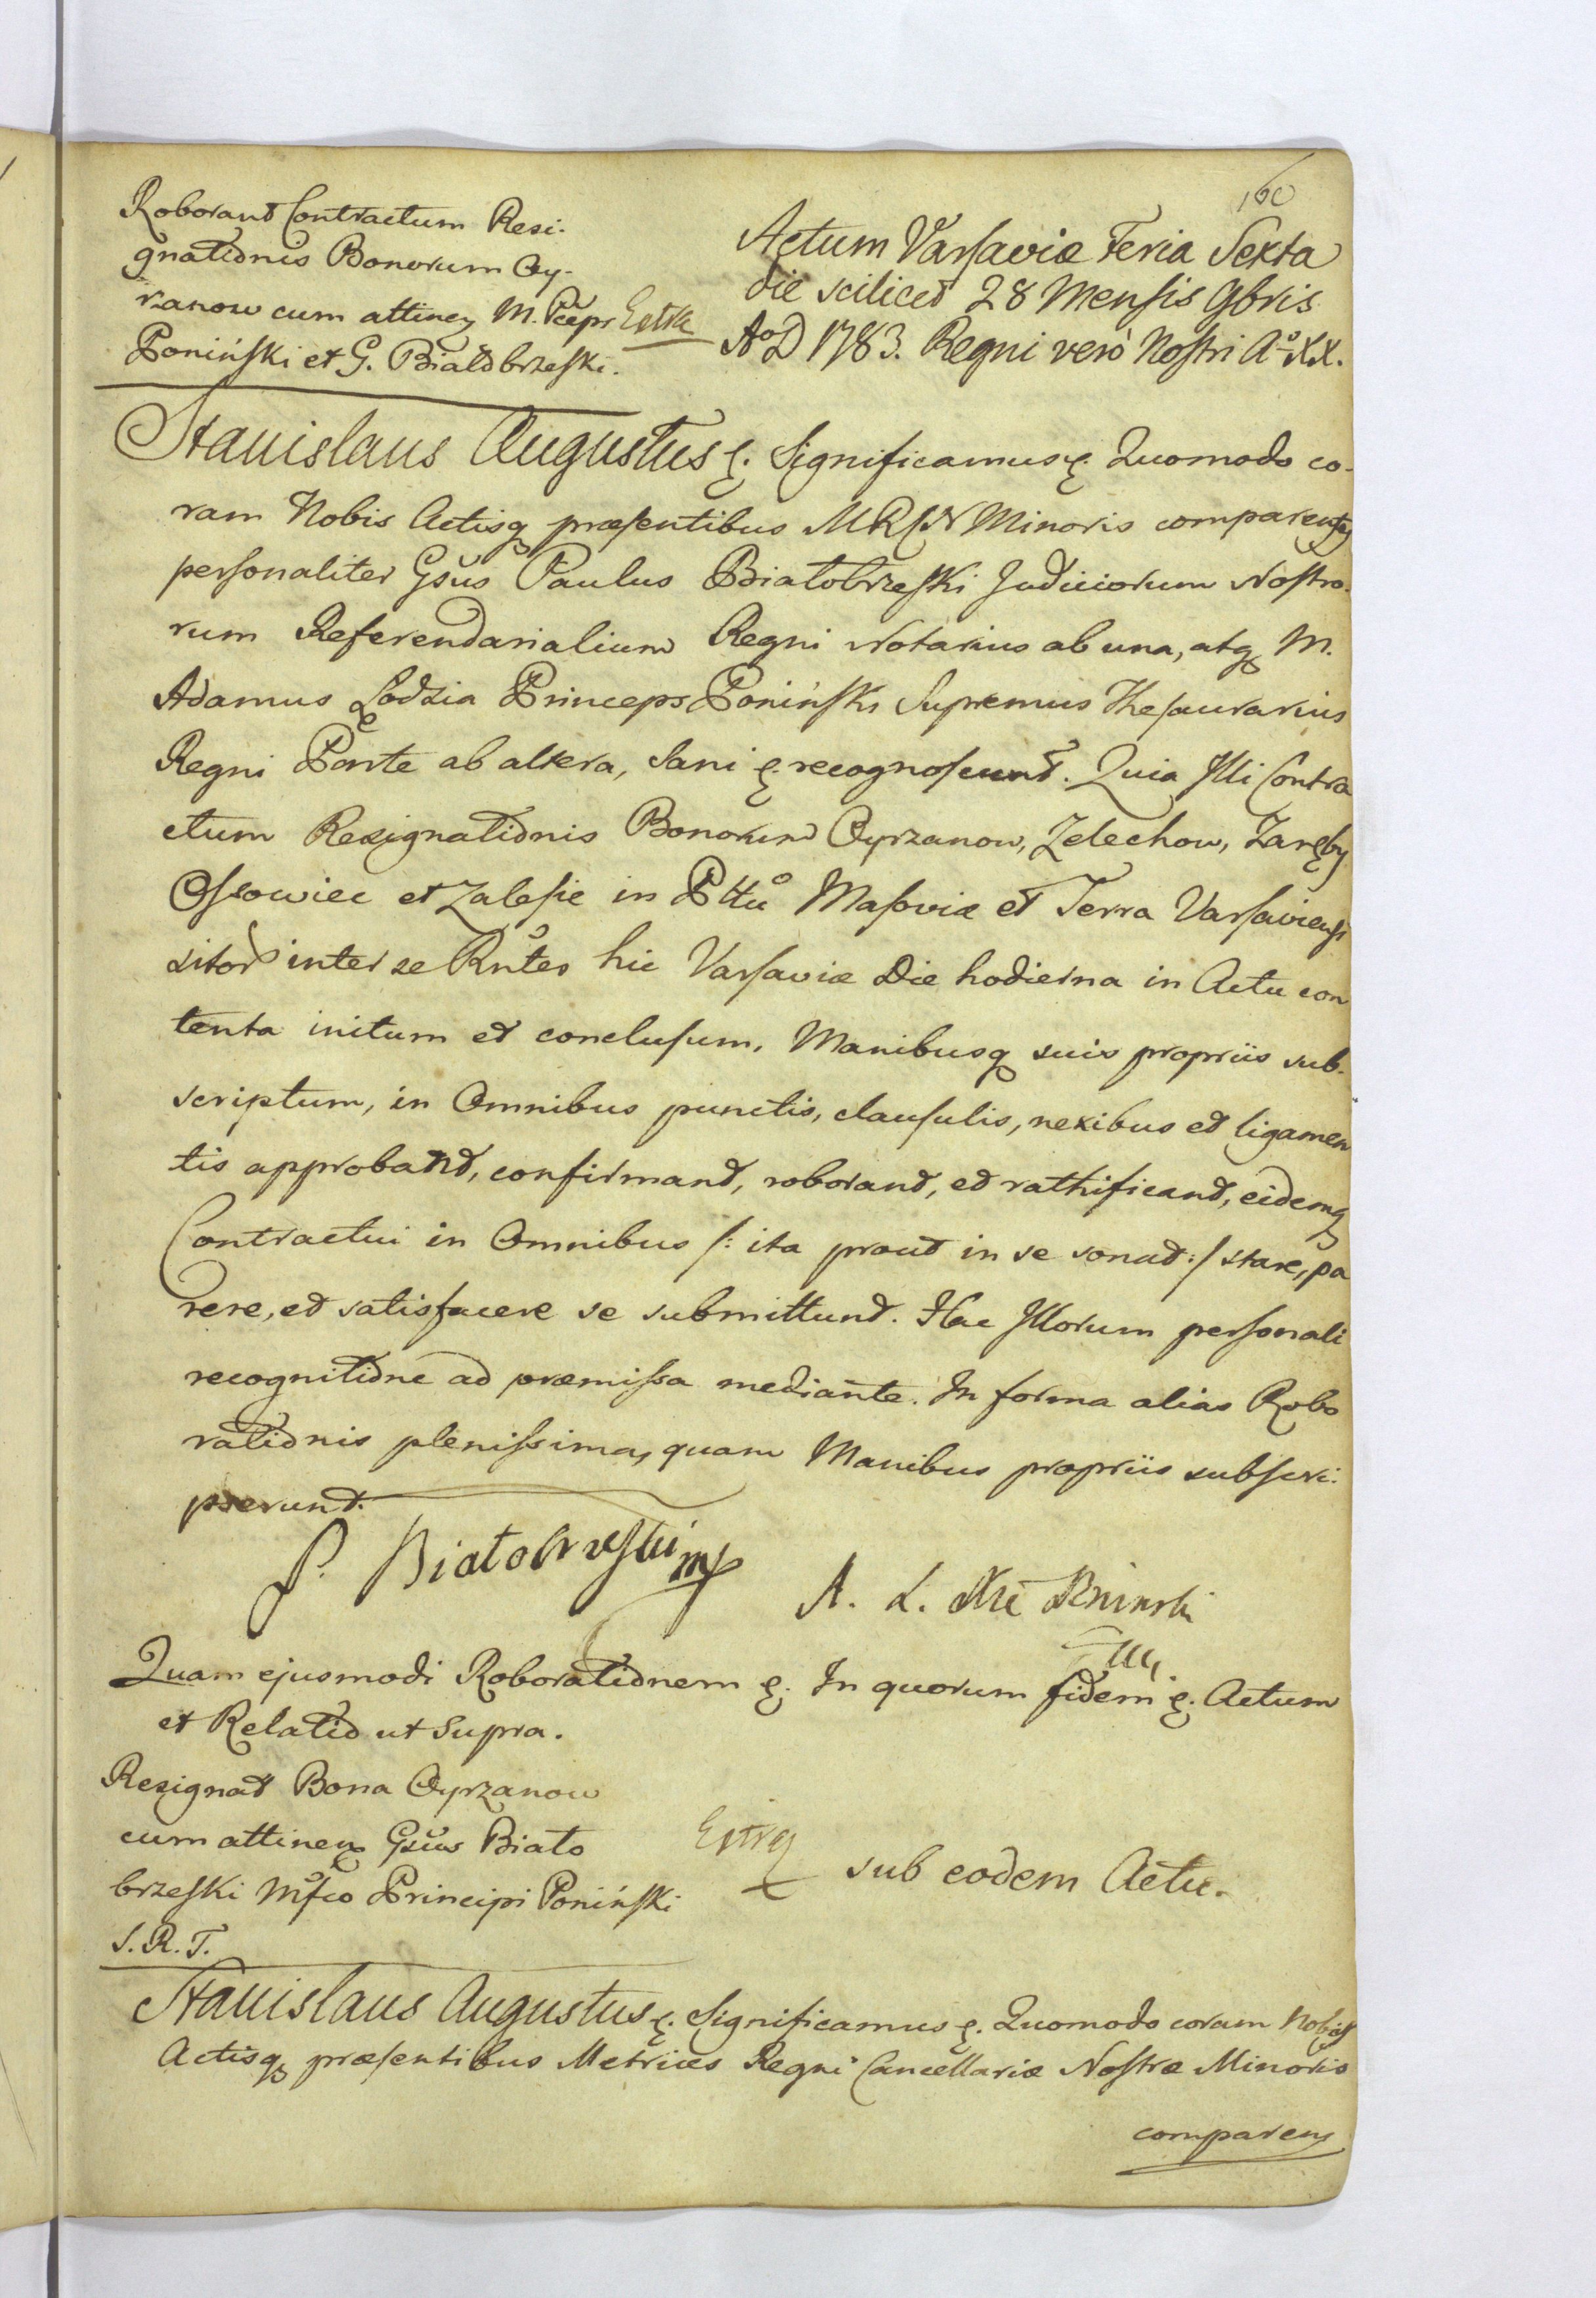 160
Roborand Contractum Resi-
gnationis Bonorum Oy-
rzanow cum attinen M. Pceps Extr
Poniński et G. Białobrzeski.
Actum Varsaviæ Feria Sexta
die scilicet 28 Mensis 9bris
AoD 1783. Regni verò Nostri Ao XX.
Stanislaus Augustus &. Significamus &. Quomodo co-
ram Nobis Actisq præsentibus MRCN Minoris comparentes
personaliter Gsus Paulus Białobrzeski Judiciorum Nostro-
rum Referendarialium Regni Notarius ab una, atq M.
Adamus Łodzia Princeps Poniński Supremus Thesaurarius
Regni Parte ab altera, Sani &. recognoscunt. Quia Illi Contra
ctum Resignationis Bonorum Oyrzanow, Zelechow, Zaręby
Ossowiec et Zalesie in Pttu Masoviæ et Terra Varsaviensi
sitor inter se Rntes hic Varsaviæ Die hodierna in Actu con
tenta initum et conclusum, Manibusq suis propriis sub-
scriptum, in Omnibus punctis, clausulis, nexibus et ligamen
tis approband, confirmand, roborand, et rathificand, eidemq
Contractui in Omnibus /: ita prout in se sonat :/ stare, pa
rere, et satisfacere se submittunt. Hac Illorum personali
recognitione ad præmissa mediante. In forma alias Robo
rationis plenissima, quam Manibus propriis subscri-
pserunt.
P. Białobrzeski mp
A. Ł. Xże Poninski
mp
Quam ejusmodi Roborationem &. In quorum fidem &. Actum
et Relatio ut Supra.
Resignat Bona Oyrzanow
cum attinen Gsus Biało
brzeski Mfco Principi Poniński
S. R. T.
Extr
sub eodem Actu.
Stanislaus Augustus &. Significamus &. Quomodo coram Nobis
Actisq præsentibus Metrices Regni Cancellariæ Nostræ Minoris
comparens